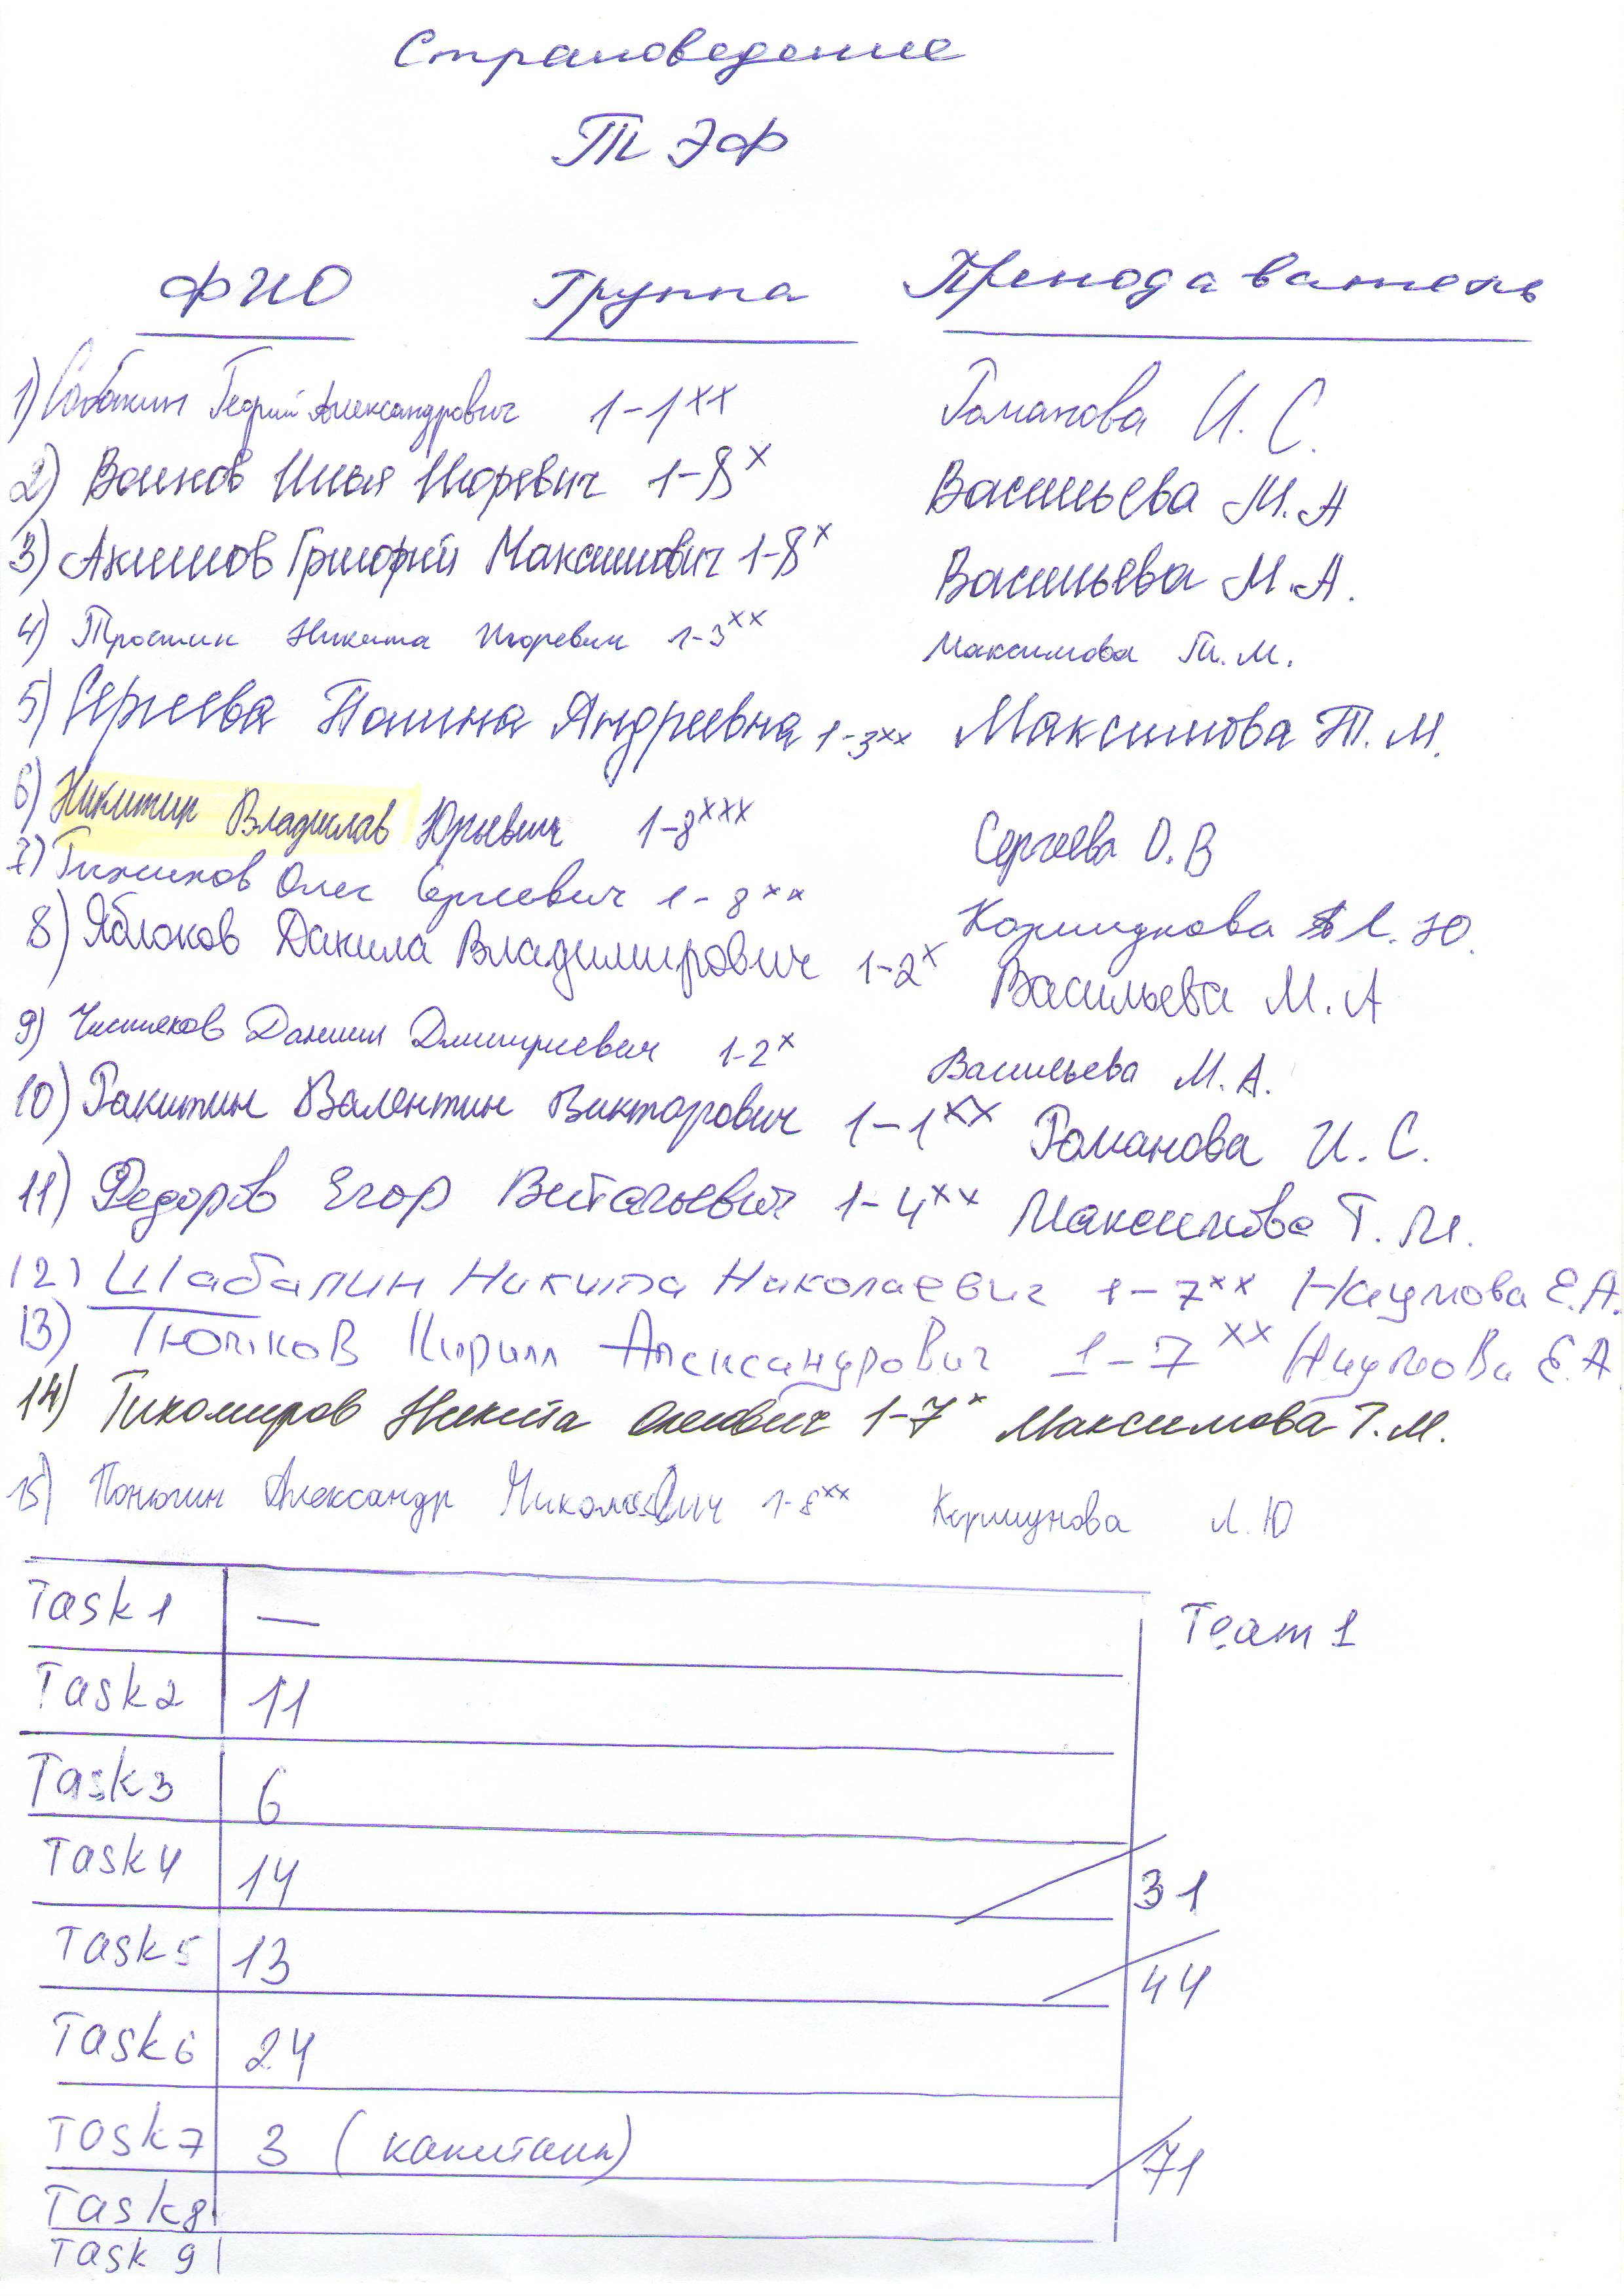 Страноведение
ТЭФ
ФИО Группа Преподаватель
1) Собакин Георгий Александрович 1-1xx Романова И. С.
2) Волков Илья Игоревич 1-8x Васильева М.А
3) Акимов Григорий Максимович 1-8x Васильева М.А.
4) Тростин Никита Игоревич 1-3xx Максимова Т.М.
5) Сергеева Полина Андреевна 1-3xx Максимова Т.М.
6) Никитин Владислав Юрьевич 1-8xxx Сергеева О.В
7) Олег Сергеевич 1-8xx Коршунова Л.Ю.
8) Яблоков Данила Владимирович 1-2x Васильева М.А
9) Чистяков Даниил Дмитриевич 1-2x Васильева М.А.
10) Ракитин Валентин Викторович 1-1xx Романова И. С.
11) Федоров Егор Витальевич 1-4xx Максимова Т.М.
12) Шабалин Никита Николаевич 1-7xx Наумова Е.А.
13) Тючков Кирилл Александрович 1-7xx Наумова Е А
14) Тихомиров Никита Олегович 1-7x Максимова Т.М.
15) Александр Николаевич 1-8xx Коршунова Л.Ю
Task1 — Team 1
Task2 11
Task3 6
Task4 14 31
Task5 13 44
Task6 24
Task7 3 (капитаны) 71
Task8
Task 9